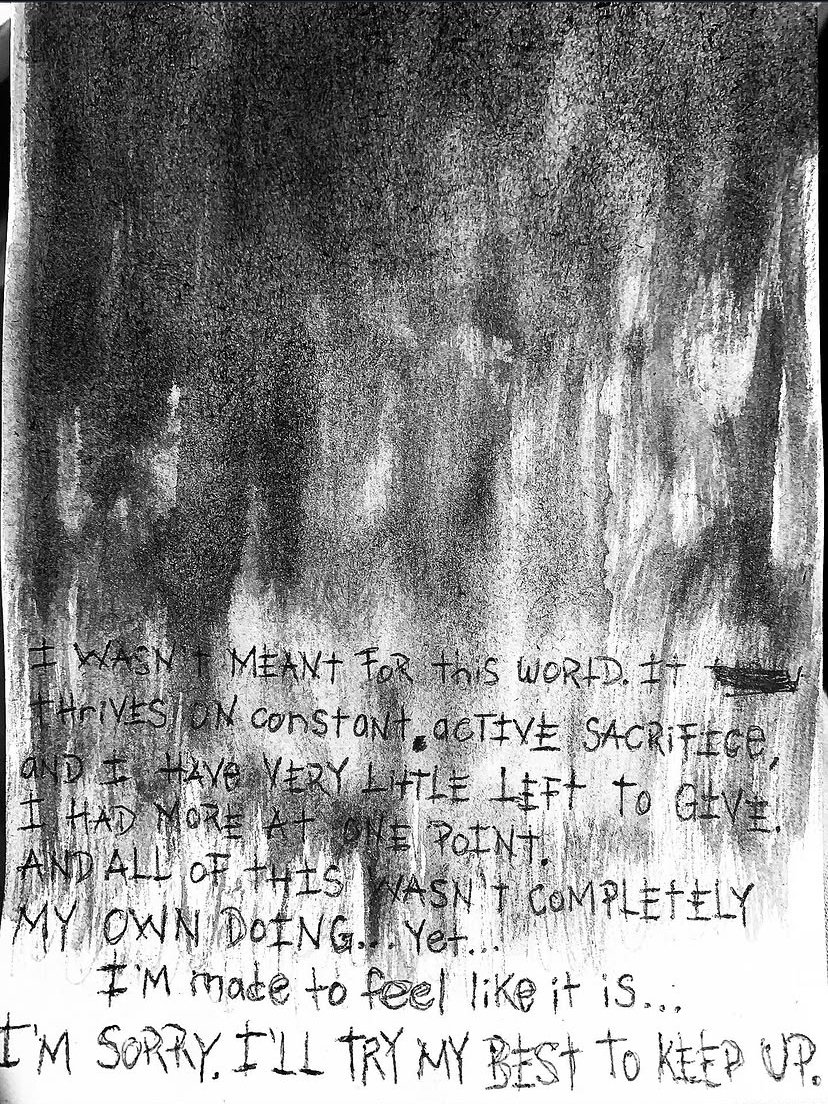 I WASN'T MEANT FOR this WORLD. It
thrIVES ON constant, actIVE SACRIFICE,
AND I HAVE VERY LITTLE LEFT to GIVE.
I HAD MORE AT ONE POINT.
AND ALL OF tHIS WASN'T COMPLETELY
MY OWN DOING... Yet...
I'M made to feel like it is...
I'M SORRY. I'LL TRY MY BEST TO KEEP UP.